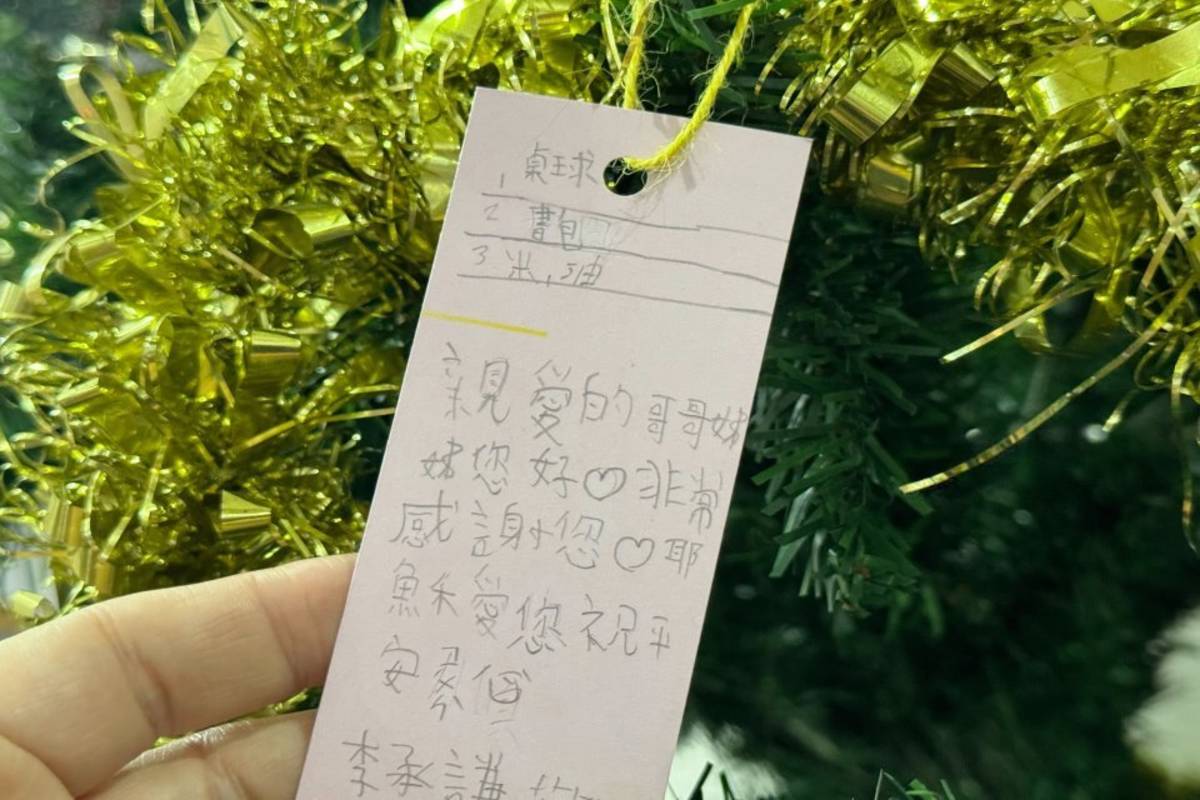 1 桌球
2 書包
3 米,油
親愛的哥哥姊
姊您好♡非常
感謝您♡耶
魚禾愛您祝平
安
李承謙